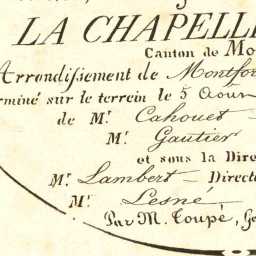 LA CHAPELLE
Canton de Mo
Arrondissement de Montfor
erminé sur le terrein le 5 Août
de Mr. Cahouet
Mr. Gautier
et sous la Dire
Mr. Lambert – Directe
Mr. Lesné
Par M. Toupé, Gé